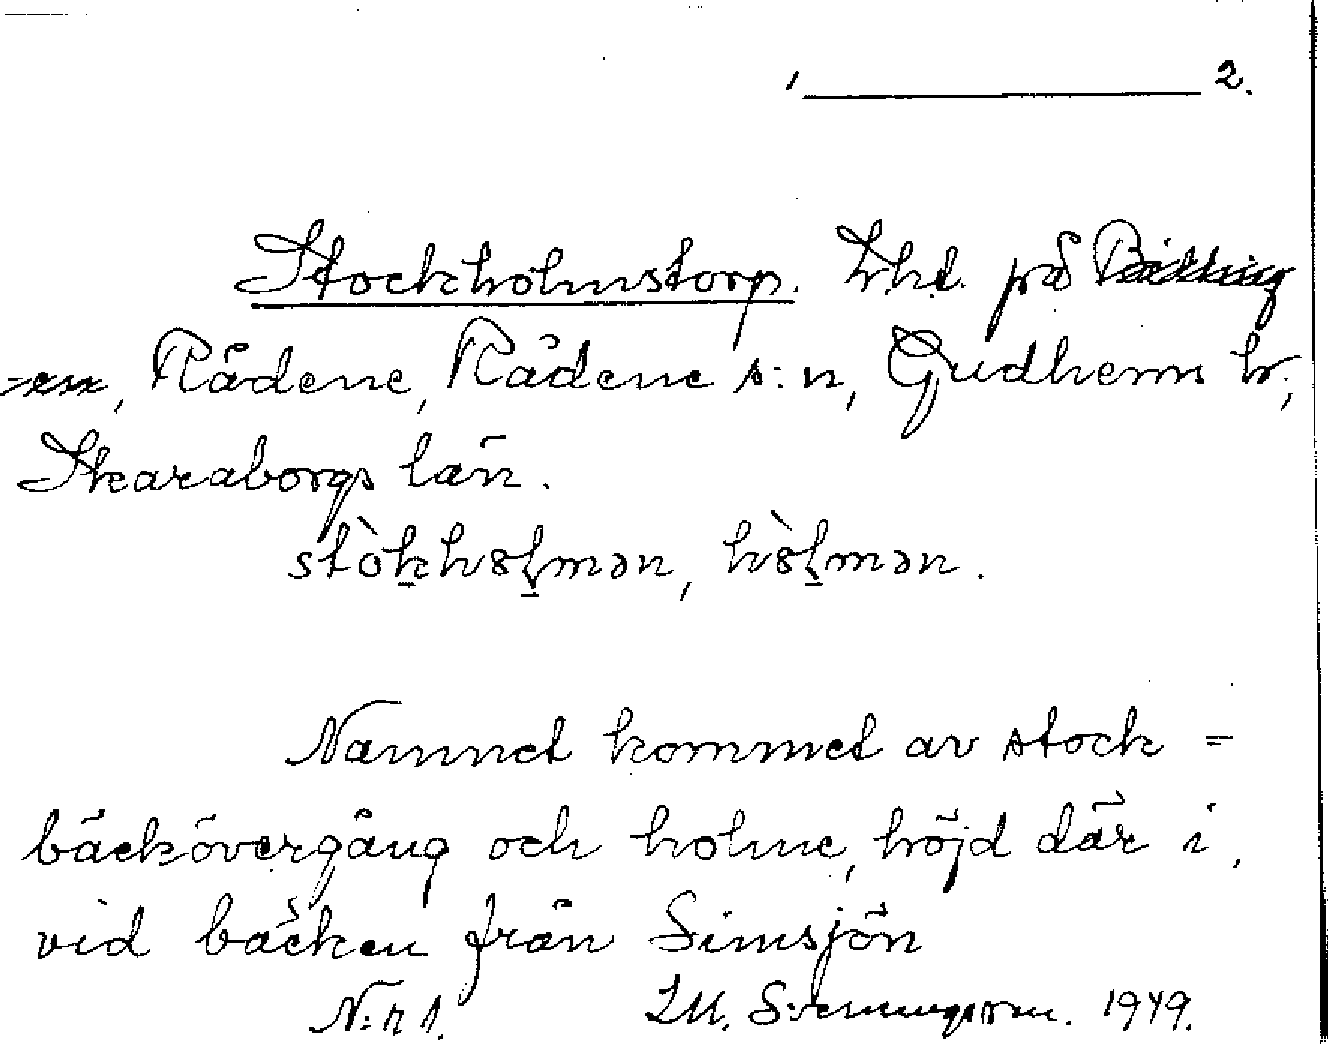 1 2.
Stockholmstorp. Lht. på Billing
-en, Rådene, Rådene s:n, Gudhems hr,
Skaraborgs län.
stòkholmən, hòlmən.
Namnet kommet av stock =
bäckövergång och holme, höjd där i,
vid bäcken från Simsjön
N:r 1. LM. Svenungsson. 1949.